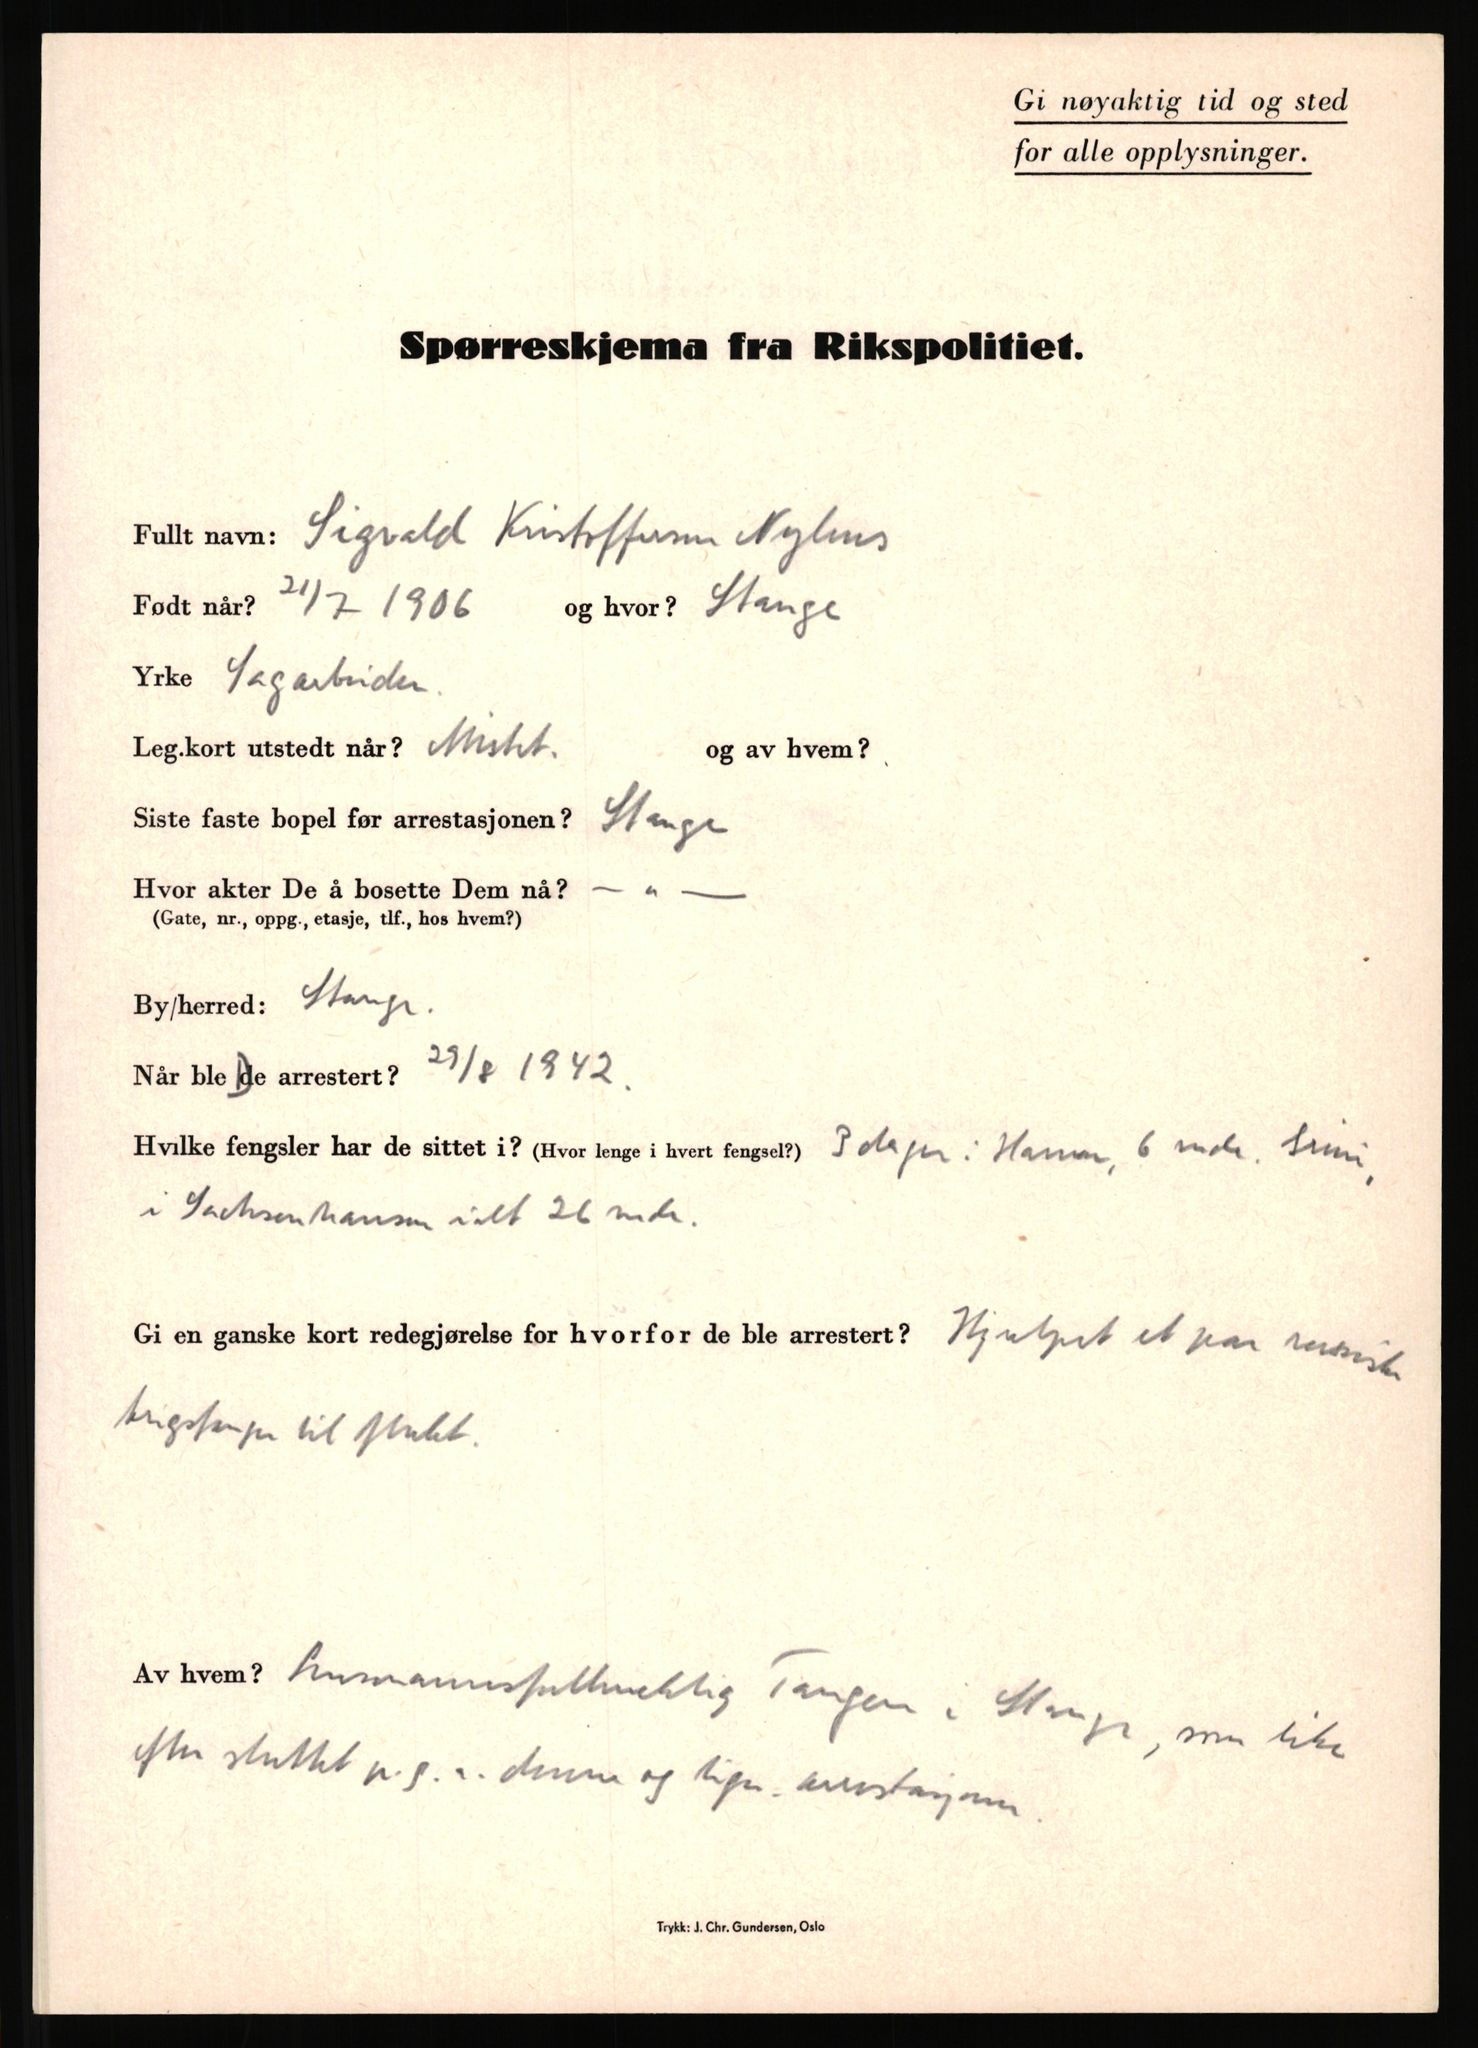 Gi nøyaktig tid og sted
for alle opplysninger.
Spørreskjema fra Rikspolitiet.
Fullt navn: Sigvald Kristoffersen Nylus
Født når? 21/7 1906 og hvor? Stange
Yrke Sagarbeider.
Leg.kort utstedt når? Mistet. og av hvem?
Siste faste bopel før arrestasjonen? Stange
Hvor akter De å bosette Dem nå? — " —
(Gate, nr., oppg., etasje, tlf., hos hvem?)
By/herred: Stange.
Når ble De arrestert? 29/8 1942.
Hvilke fengsler har de sittet i? (Hvor lenge i hvert fengsel?) 3 dager i Hamar, 6 mdr. Grini,
i Sachsenhausen i alt 26 mdr.
Gi en ganske kort redegjørelse for hvorfor de ble arrestert? Hjulpet et par russiske
krigsfanger til flukt.
Av hvem? Lensmannsfullmektig Tangen i Stange, som like
efter sluttet p.g.a. denne og lign. arrestasjoner.
Trykk: J. Chr. Gundersen, Oslo